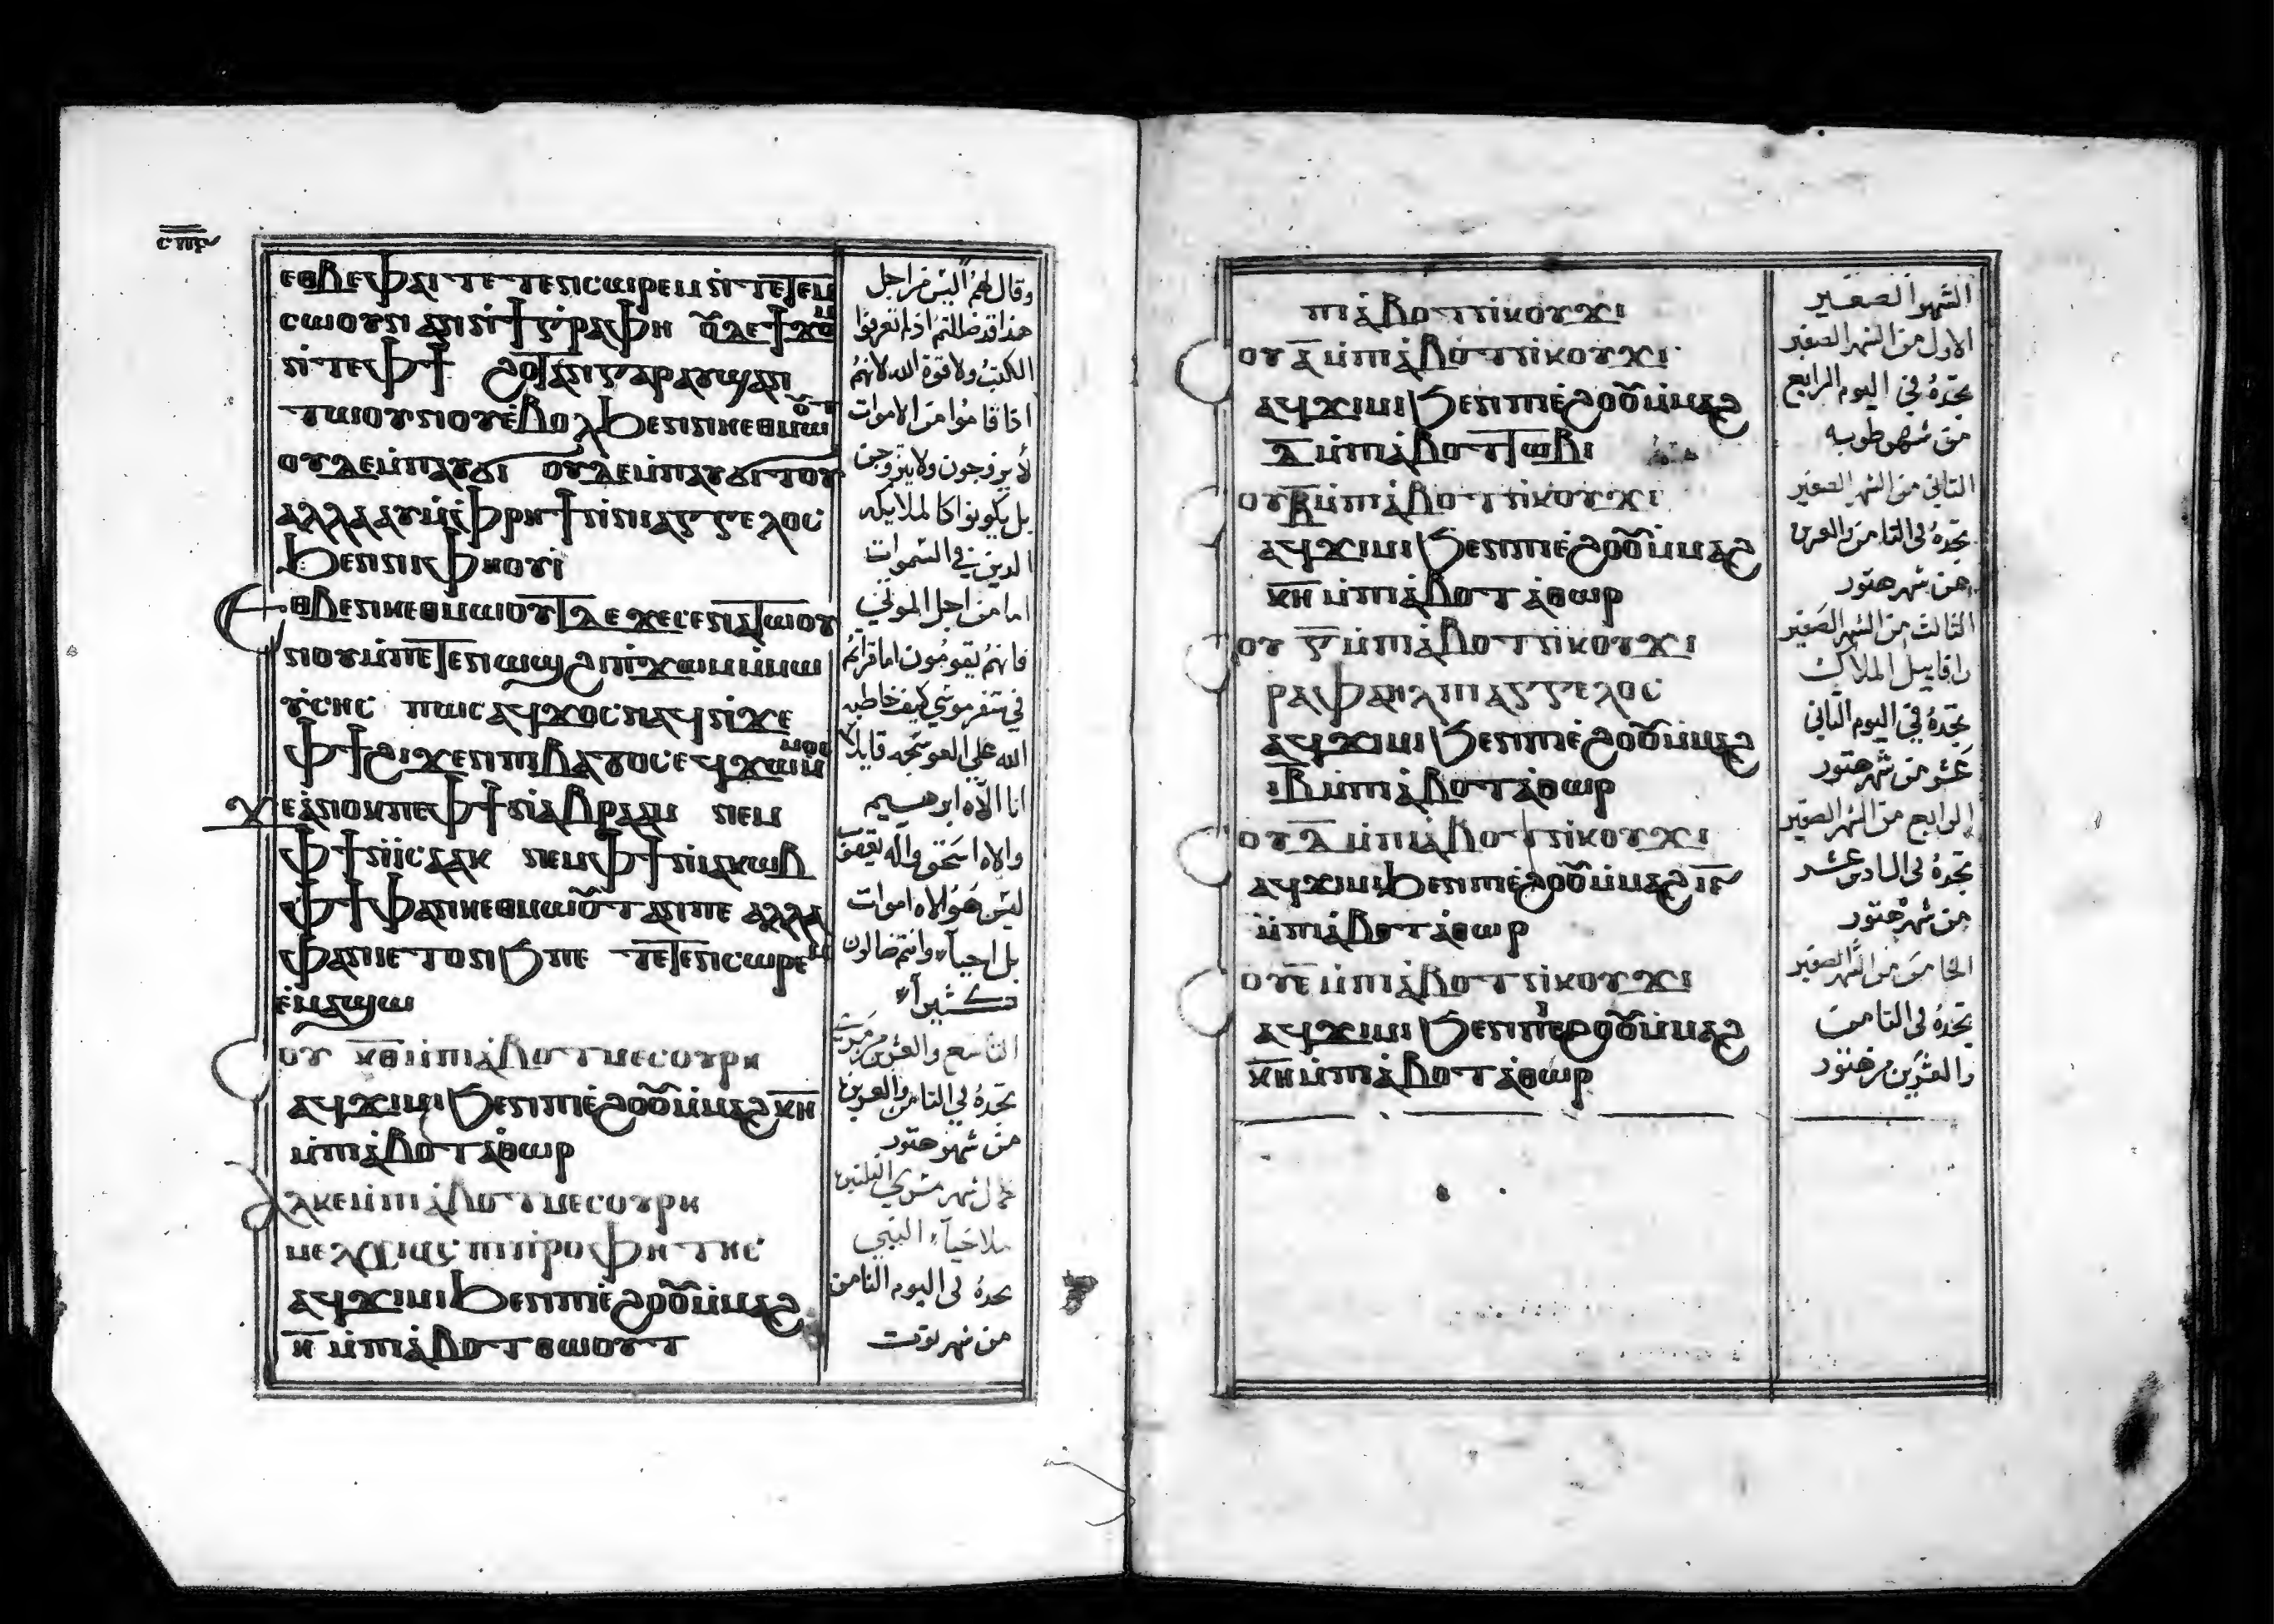 ⲥⲡⲋ
ⲉⲑⲃⲉⲫⲁⲓ ⲧⲉ ⲧⲉⲛⲥⲱⲣⲉⲙ ⲛⲧⲉⲧⲉⲛ
ⲥⲱⲟⲩⲛ ⲁⲛ ⲛϯⲅⲣⲁⲫⲏ ⲟⲩⲇⲉ ϯϫⲟⲙ
ⲛⲧⲉⲫϯ ϩⲟⲧⲁⲛ ⲅⲁⲣ ⲁⲩϣⲁⲛ
ⲧⲱⲟⲩⲛⲟⲩ ⲉⲃⲟⲗϧⲉⲛ ⲛⲏⲉⲑⲙⲱⲟⲩⲧ
ⲟⲩⲇⲉ ⲙⲡⲁⲩϭⲓ ⲟⲩⲇⲉ ⲙⲡⲁⲩϭⲓⲧⲟⲩ
ⲁⲗⲗⲁ ⲁⲩⲙⲫⲣⲏϯ ⲛⲛⲓⲁⲅⲅⲉⲗⲟⲥ
ϧⲉⲛ ⲛⲓⲫⲏⲟⲩⲓ
ⲉⲑⲃⲉ ⲛⲏⲉⲑⲙⲱⲟⲩⲧ ⲇⲉ ϫⲉ ⲥⲉⲛⲁⲧⲱⲟⲩ
ⲛⲟⲩ ⲙⲡⲉⲧⲉⲛⲱϣ ϩⲓ ⲡϫⲱⲙ ⲙⲙⲱ
ⲩⲥⲏⲥ ⲡⲱⲥ ⲁϥϫⲟⲥ ⲛⲁϥ ⲛϫⲉ
ⲫϯ ϩⲓϫⲉⲛ ⲡⲓⲃⲁⲧⲟⲥ ⲉϥϫⲱ ⲙⲙⲟⲥ
ϫⲉ ⲁⲛⲟⲕ ⲡⲉ ⲫϯ ⲛⲁⲃⲣⲁⲁⲙ ⲛⲉⲙ
ⲫϯ ⲛⲓⲥⲁⲁⲕ ⲛⲉⲙ ⲫϯ ⲛⲓⲁⲕⲱⲃ
ⲫϯ ⲫⲁ ⲛⲏⲉⲑⲙⲱⲟⲩⲧ ⲁⲛ ⲡⲉ ⲁⲗⲗⲁ
ⲫⲁ ⲛⲏⲉⲧⲟⲛϧ ⲡⲉ ⲧⲉⲧⲉⲛⲥⲱⲣⲉⲙ
ⲉⲙⲁϣⲱ
ⲥⲟⲩ ⲕⲑ ⲙⲡⲓⲁⲃⲟⲧ ⲙⲉⲥⲟⲩⲣⲏ
ⲁϥϫⲓⲙⲓ ϧⲉⲛ ⲡⲓⲉϩⲟⲟⲩ ⲙⲙⲁϩ ⲕⲏ
ⲙⲡⲓⲁⲃⲟⲧ ⲁⲑⲱⲣ
ⲗⲕⲉ ⲙⲡⲓⲁⲃⲟⲧ ⲙⲉⲥⲟⲩⲣⲏ
ⲙⲉⲗⲭⲓⲁⲥ ⲡⲓⲡⲣⲟⲫⲏⲧⲏⲥ
ⲁϥϫⲓⲙⲓ ϧⲉⲛ ⲡⲓⲉϩⲟⲟⲩ ⲙⲙⲁϩ
ⲏ ⲙⲡⲓⲁⲃⲟⲧ ⲑⲱⲟⲩⲧ
وقال لهم اليس من اجل
هذا قد ضللتم اذ لم تعرفوا
الكتب ولا قوة الله لانهم
اذا قاموا من الاموات
لا يزوجون ولا يتزوجون
بل يكونوا كالملايكه
الدين في السموات
اما من اجل الموتي
فانهم يقومون اما قراتم
في سفر موسي كيف خاطبه
الله علي العوسجه قايلا
انا الاه ابرهسيم
والاه اسحق واله يعقوب
ليس هو الاه اموات
بل احيا وانتم ضالون
كثيرا
التاسع والعشرين من مسري
تجده في التامن والعشرين
من شهر هتور
كمال شهر مسري التلتين
ملاخيا النبي
تجده في اليوم التامن
من شهر توت
ⲡⲓⲁⲃⲟⲧ ⲛⲕⲟⲩϫⲓ
ⲥⲟⲩ ⲁ ⲙⲡⲓⲁⲃⲟⲧ ⲛⲕⲟⲩϫⲓ
ⲁϥϫⲓⲙⲓ ϧⲉⲛ ⲡⲓⲉϩⲟⲟⲩ ⲙⲙⲁϩ
ⲇ ⲙⲡⲓⲁⲃⲟⲧ ⲧⲱⲃⲓ
ⲥⲟⲩ ⲃ ⲙⲡⲓⲁⲃⲟⲧ ⲛⲕⲟⲩϫⲓ
ⲁϥϫⲓⲙⲓ ϧⲉⲛ ⲡⲓⲉϩⲟⲟⲩ ⲙⲙⲁϩ
ⲕⲏ ⲙⲡⲓⲁⲃⲟⲧ ⲁⲑⲱⲣ
ⲥⲟⲩ ⲅ ⲙⲡⲓⲁⲃⲟⲧ ⲛⲕⲟⲩϫⲓ
ⲣⲁⲫⲁⲏⲗ ⲡⲓⲁⲅⲅⲉⲗⲟⲥ
ⲁϥϫⲓⲙⲓ ϧⲉⲛ ⲡⲓⲉϩⲟⲟⲩ ⲙⲙⲁϩ
ⲓⲃ ⲙⲡⲓⲁⲃⲟⲧ ⲁⲑⲱⲣ
ⲥⲟⲩ ⲇ ⲙⲡⲓⲁⲃⲟⲧ ⲛⲕⲟⲩϫⲓ
ⲁϥϫⲓⲙⲓ ϧⲉⲛ ⲡⲓⲉϩⲟⲟⲩ ⲙⲙⲁϩ ⲓⲋ
ⲙⲡⲓⲁⲃⲟⲧ ⲁⲑⲱⲣ
ⲥⲟⲩ ⲉ ⲙⲡⲓⲁⲃⲟⲧ ⲛⲕⲟⲩϫⲓ
ⲁϥϫⲓⲙⲓ ϧⲉⲛ ⲡⲓⲉϩⲟⲟⲩ ⲙⲙⲁϩ
ⲕⲏ ⲙⲡⲓⲁⲃⲟⲧ ⲁⲑⲱⲣ
الشهر الصغير
الاول من الشهر الصغير
تجده في اليوم الرابع
من شهر طوبه
التاني من الشهر الصغير
تجده في التامن والعشرين
من شهر هتور
التالت من الشهر الصغير
رافاييل الملاك
تجده في اليوم التاني
عشر من شهر هتور
الرابع من الشهر الصغير
تجده في السادس عشر
من شهر هتور
الخامس من الشهر الصغير
تجده في التامن
والعشرين من هتور